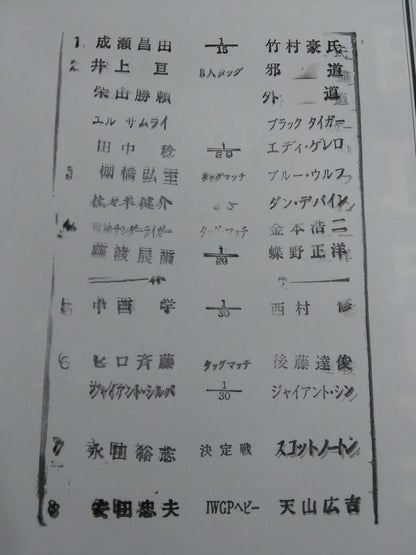 1. 成瀬昌由 1/15 竹村豪氏
2. 井上亘 8人タッグ 邪道
柴田勝頼 外道
エル サムライ ブラックタイガー
田中稔 1/20 エディ・ゲレロ
3 棚橋弘至 タッグマッチ ブルー・ウルフ
佐々木健介 ダン・デバイン
4 獣神サンダーライガー タッグ・マッチ 金本浩二
藤波辰爾 1/20 蝶野正洋
5 中西学 1/30 西村修
6 ヒロ斉藤 タッグマッチ 後藤達俊
ジャイアント・シルバ 1/30 ジャイアント・シン
7 永田裕志 決定戦 スコットノートン
8 安田忠夫 IWGPヘビー 天山広吉